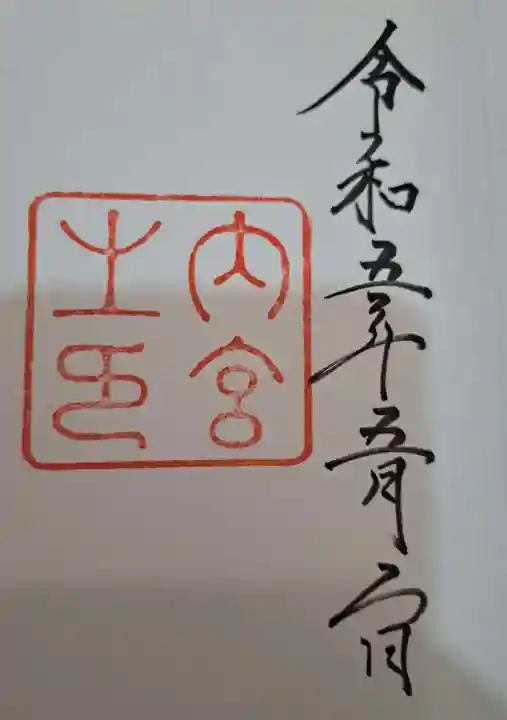 令和五年五月 日
内宮
之印